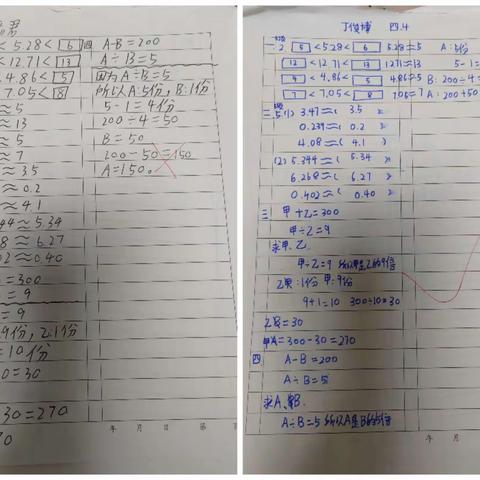 < 5.28 < 6
< 12.71 < 13
4.86 < 5
7.05 < 8
≈ 5
≈ 13
≈ 5
≈ 7
≈ 3.5
≈ 0.2
≈ 4.1
44 ≈ 5.34
8 ≈ 6.27
02 ≈ 0.40
= 300
= 9
= 9
9份,乙:1份
= 10份
0 = 30
30 = 270
70
四 A-B=200
A÷B=5
因为A÷B=5
所以A:5份,B:1份
5-1=4份
200÷4=50
B=50
200-50=150
A=150。
年 月 日 第
四.4
2 5 <5.28< 6 5.28≈5 A:5份
12 <12.71< 13 12.71≈13 5-1=
4 <4.86< 5 4.86≈5 B:200÷4=
7 <7.05< 8 7.06≈7 A:200+50
二 5.(1) 3.47≈( 3.5 )
0.239≈( 0.2 )
4.08≈( 4.1 )
(2) 5.344≈( 5.34 )
6.268≈( 6.27 )
0.402≈( 0.40 )
三 甲+乙=300
甲÷乙=9
求甲、乙
甲÷乙=9 所以甲是乙的9倍
乙:1份 甲:9份
9+1=10 300÷10=30
乙=30
甲=300-30=270
四 A-B=200
A÷B=5
求A、B.
A÷B=5 所以A是B的5倍
年 月